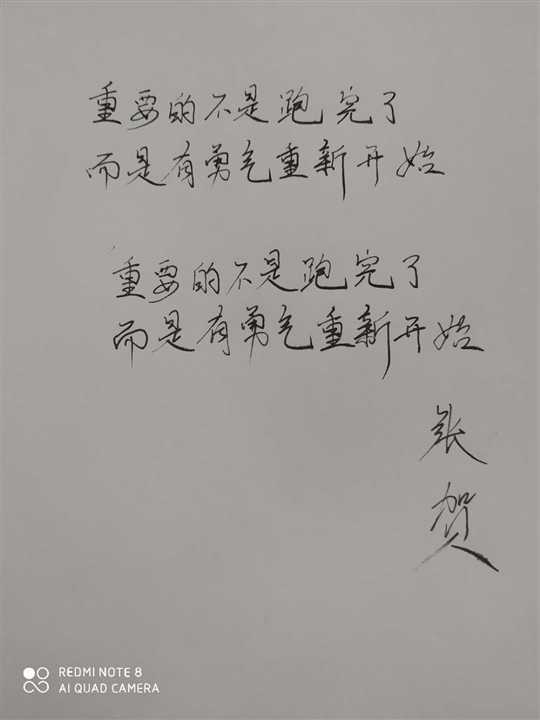 重要的不是跑完了
而是有勇气重新开始
重要的不是跑完了
而是有勇气重新开始
张
贺
REDMI NOTE 8
AI QUAD CAMERA